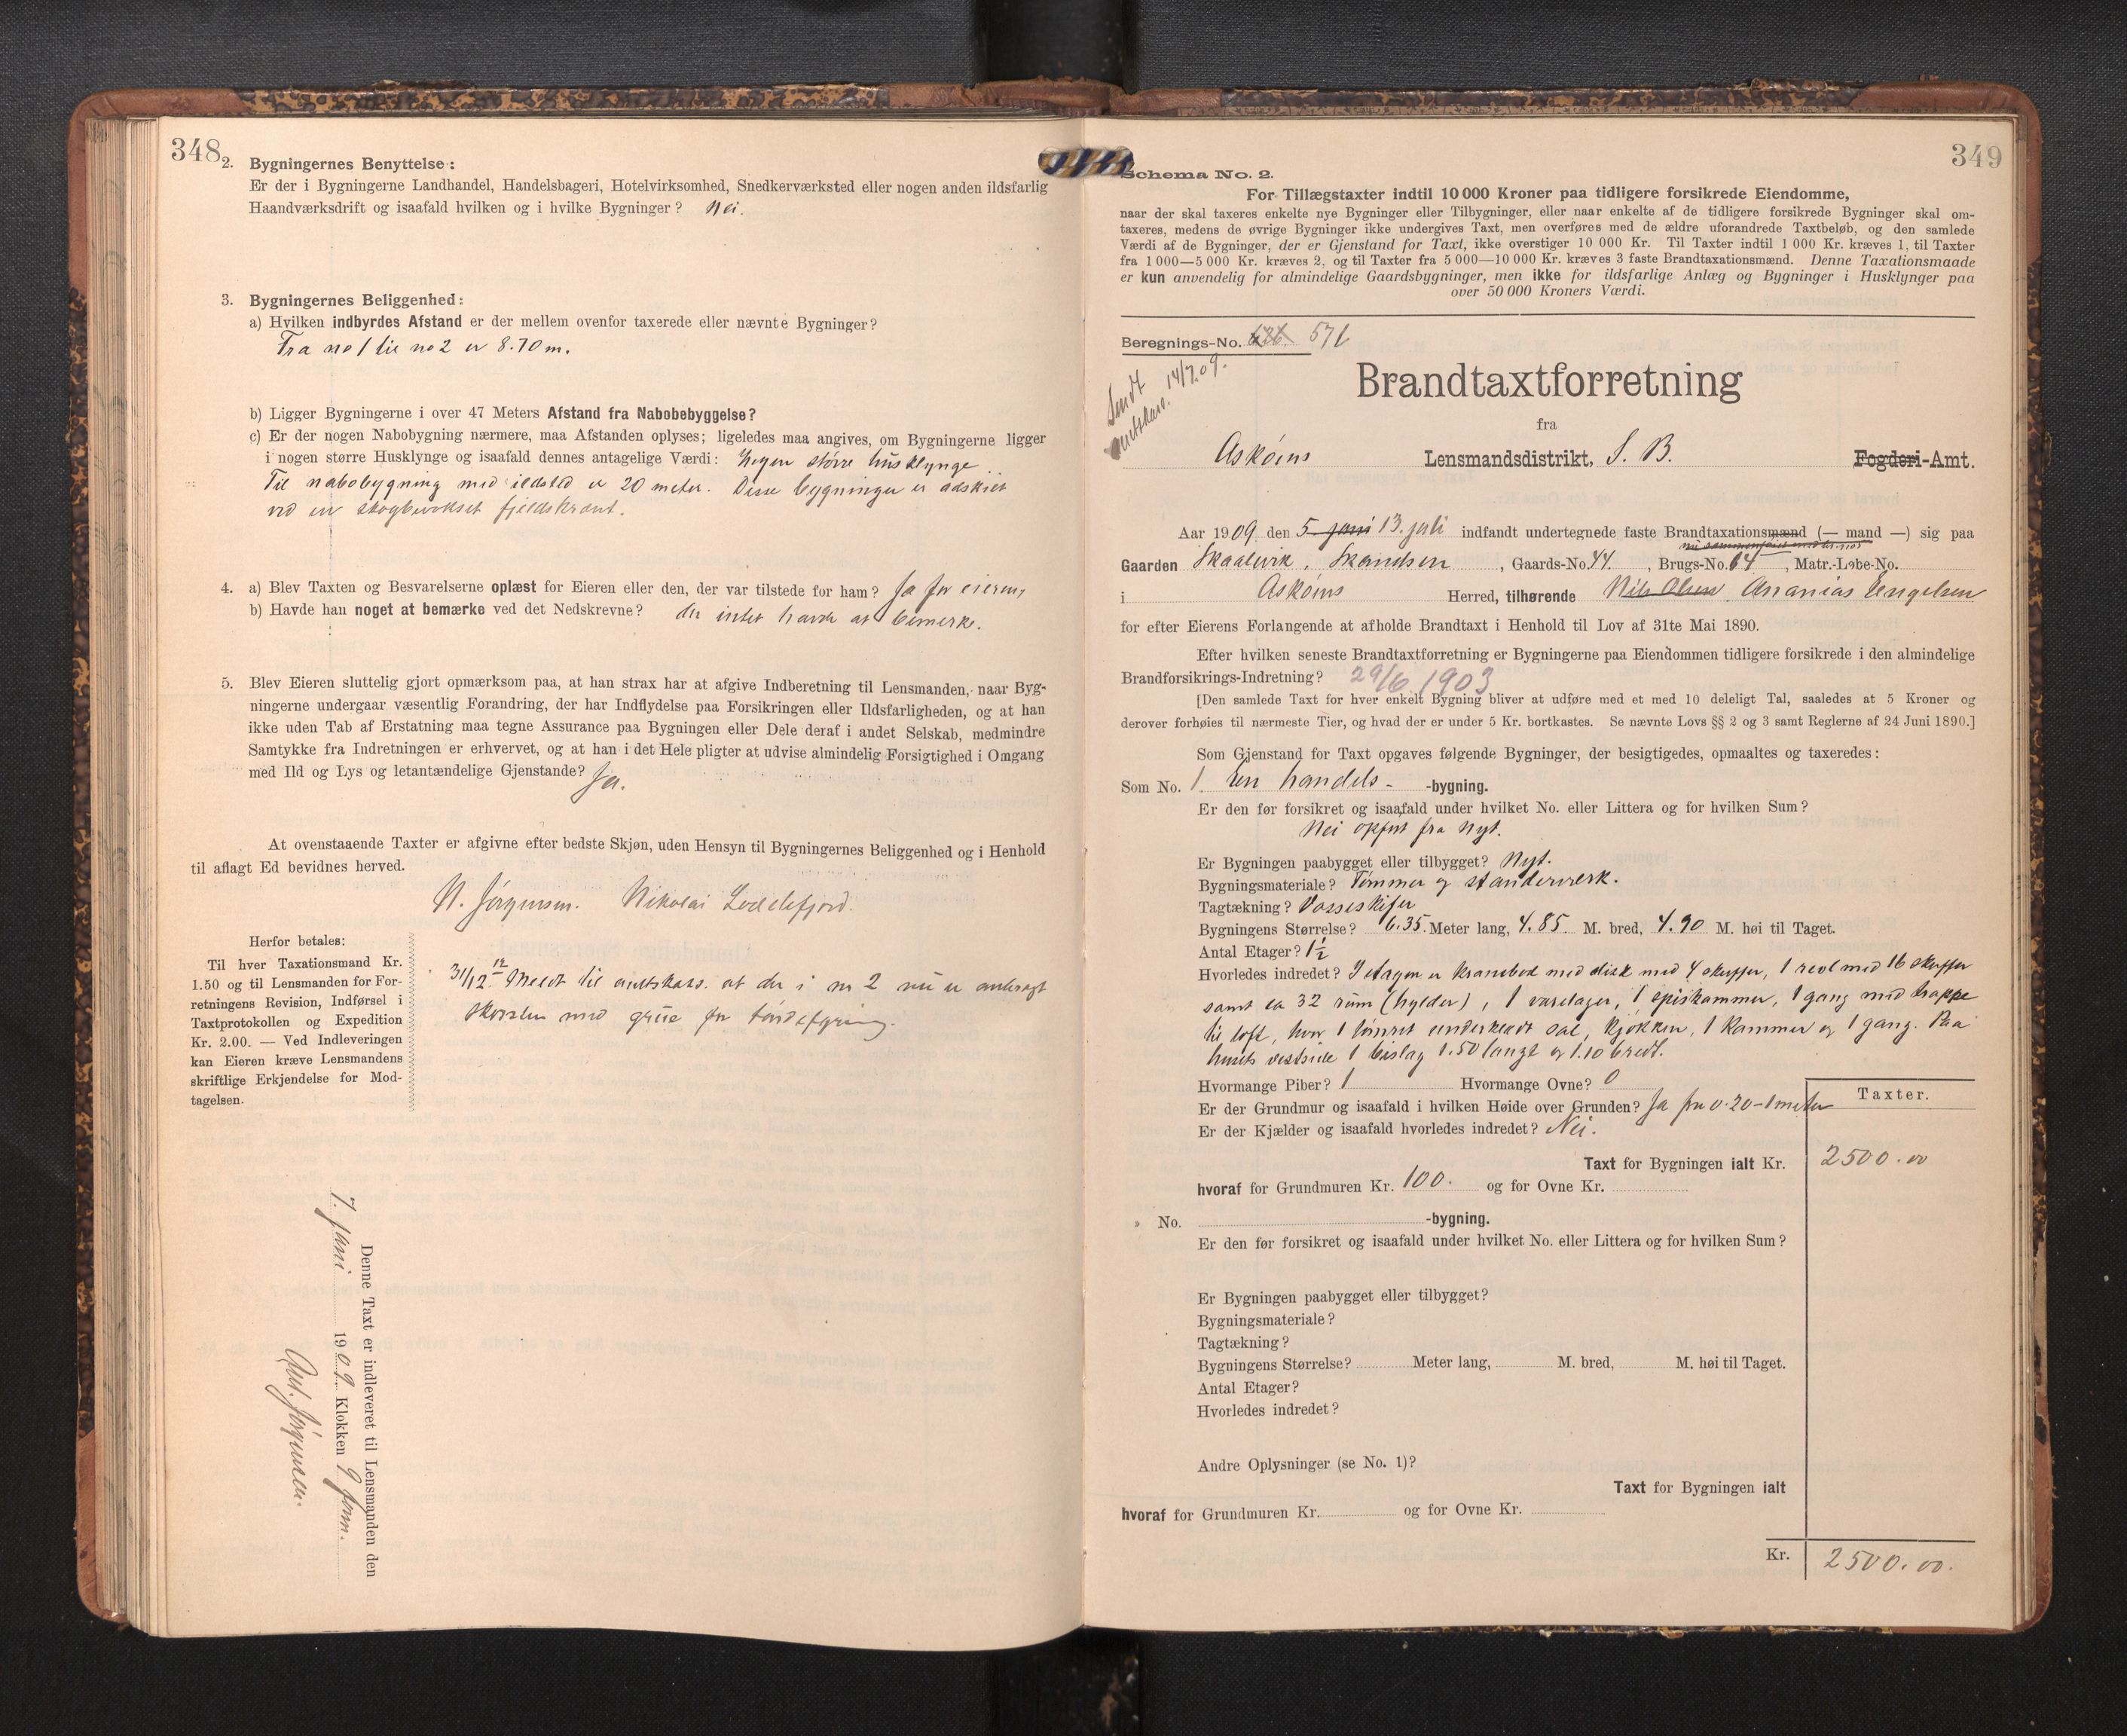 348
2. Bygningernes Benyttelse:
Er der i Bygningerne Landhandel, Handelsbageri, Hotelvirksomhed, Snedkerværksted eller nogen anden ildsfarlig
Haandværksdrift og isaafald hvilken og i hvilke Bygninger? Nei.
3. Bygningernes Beliggenhed:
a) Hvilken indbyrdes Afstand er der mellem ovenfor taxerede eller nævnte Bygninger?
Fra no 1 til no 2 er 8.70 m.
b) Ligger Bygningerne i over 47 Meters Afstand fra Nabobebyggelse?
c) Er der nogen Nabobygning nærmere, maa Afstanden oplyses; ligeledes maa angives, om Bygningerne ligger
i nogen større Husklynge og isaafald dennes antagelige Værdi: Ingen större husklynge.
Til nabobygning med ildsted er 20 meter. Disse bygninger er adskilt
ved en skogbevokset fjeldskrænt.
4. a) Blev Taxten og Besvarelserne oplæst for Eieren eller den, der var tilstede for ham? Ja for eieren,
b) Havde han noget at bemærke ved det Nedskrevne? der intet havde at bemerke.
5. Blev Eieren sluttelig gjort opmærksom paa, at han strax har at afgive Indberetning til Lensmanden, naar Byg-
ningerne undergaar væsentlig Forandring, der har Indflydelse paa Forsikringen eller Ildsfarligheden, og at han
ikke uden Tab af Erstatning maa tegne Assurance paa Bygningen eller Dele deraf i andet Selskab, medmindre
Samtykke fra Indretningen er erhvervet, og at han i det Hele pligter at udvise almindelig Forsigtighed i Omgang
med Ild og Lys og letantændelige Gjenstande? Ja.
At ovenstaaende Taxter er afgivne efter bedste Skjøn, uden Hensyn til Bygningernes Beliggenhed og i Henhold
til aflagt Ed bevidnes herved.
N. Jörgensen. Nikolai Loddefjord.
Herfor betales:
Til hver Taxationsmand Kr.
1.50 og til Lensmanden for For-
retningens Revision, Indførsel i
Taxtprotokollen og Expedition
Kr. 2.00. — Ved Indleveringen
kan Eieren kræve Lensmandens
skriftlige Erkjendelse for Mod-
tagelsen.
31/12 12 Meldt til amtskass. at der i nr 2 nu er anbragt
skorsten med grue for
Denne Taxt er indleveret til Lensmanden den
7. juni 1909 Klokken 9 form.
Ant. Jörgensen.
349
Schema No. 2.
For Tillægstaxter indtil 10 000 Kroner paa tidligere forsikrede Eiendomme,
naar der skal taxeres enkelte nye Bygninger eller Tilbygninger, eller naar enkelte af de tidligere forsikrede Bygninger skal om-
taxeres, medens de øvrige Bygninger ikke undergives Taxt, men overføres med de ældre uforandrede Taxtbeløb, og den samlede
Værdi af de Bygninger, der er Gjenstand for Taxt, ikke overstiger 10 000 Kr. Til Taxter indtil 1 000 Kr. kræves 1, til Taxter
fra 1 000—5 000 Kr. kræves 2, og til Taxter fra 5 000—10 000 Kr. kræves 3 faste Brandtaxationsmænd. Denne Taxationsmaade
er kun anvendelig for almindelige Gaardsbygninger, men ikke for ildsfarlige Anlæg og Bygninger i Husklynger paa
over 50 000 Kroners Værdi.
Beregnings-No. 571
Sendt
amtskass. 14/7.09.
Brandtaxtforretning
fra
Askøens Lensmandsdistrikt, S. B. Fogderi-Amt.
Aar 1909 den 5 juni 13. juli indfandt undertegnede faste Brandtaxationsmænd (— mand —) sig paa
Gaarden Skaalevik, Skandsen, Gaards-No. 44, Brugs-No. 64, Matr.-Løbe-No.
i Askøens Herred, tilhørende Nils Olsen Ananias Engelsen
for efter Eierens Forlangende at afholde Brandtaxt i Henhold til Lov af 31te Mai 1890.
Efter hvilken seneste Brandtaxtforretning er Bygningerne paa Eiendommen tidligere forsikrede i den almindelige
Brandforsikrings-Indretning? 29/6 1903
[Den samlede Taxt for hver enkelt Bygning bliver at udføre med et med 10 deleligt Tal, saaledes at 5 Kroner og
derover forhøies til nærmeste Tier, og hvad der er under 5 Kr. bortkastes. Se nævnte Lovs §§ 2 og 3 samt Reglerne af 24 Juni 1890.]
Som Gjenstand for Taxt opgaves følgende Bygninger, der besigtigedes, opmaaltes og taxeredes:
Som No. 1. En handels- -bygning.
Er den før forsikret og isaafald under hvilket No. eller Littera og for hvilken Sum?
Nei opført fra nyt.
Er Bygningen paabygget eller tilbygget? Nyt.
Bygningsmateriale? Tömmer og standerverk.
Tagtækning? Vosseskifer
Bygningens Størrelse? 6.35 Meter lang, 4.85 M. bred, 4.90 M. høi til Taget.
Antal Etager? 1½
Hvorledes indredet? I etagen er krambod med disk med 4 skuffer, 1 reol med 16 skuffer
samt ca 32 rum (hylder), 1 varelager, 1 spiskammer, 1 gang med trappe
til loft, hvor 1 sal, kjøkken, 1 kammer og 1 gang. Paa
husets vestside 1 bislag 1.50 langt og 1.10 bredt.
Hvormange Piber? 1 Hvormange Ovne? 0
Er der Grundmur og isaafald i hvilken Høide over Grunden? Ja fra 0.20-1 meter
Er der Kjælder og isaafald hvorledes indredet? Nei.
Taxter.
Taxt for Bygningen ialt Kr. 2500.00
hvoraf for Grundmuren Kr. 100. og for Ovne Kr.
» No. -bygning.
Er den før forsikret og isaafald under hvilket No. eller Littera og for hvilken Sum?
Er Bygningen paabygget eller tilbygget?
Bygningsmateriale?
Tagtækning?
Bygningens Størrelse? Meter lang, M. bred, M. høi til Taget.
Antal Etager?
Hvorledes indredet?
Andre Oplysninger (se No. 1)?
Taxt for Bygningen ialt
hvoraf for Grundmuren Kr. og for Ovne Kr.
Kr. 2500.00.